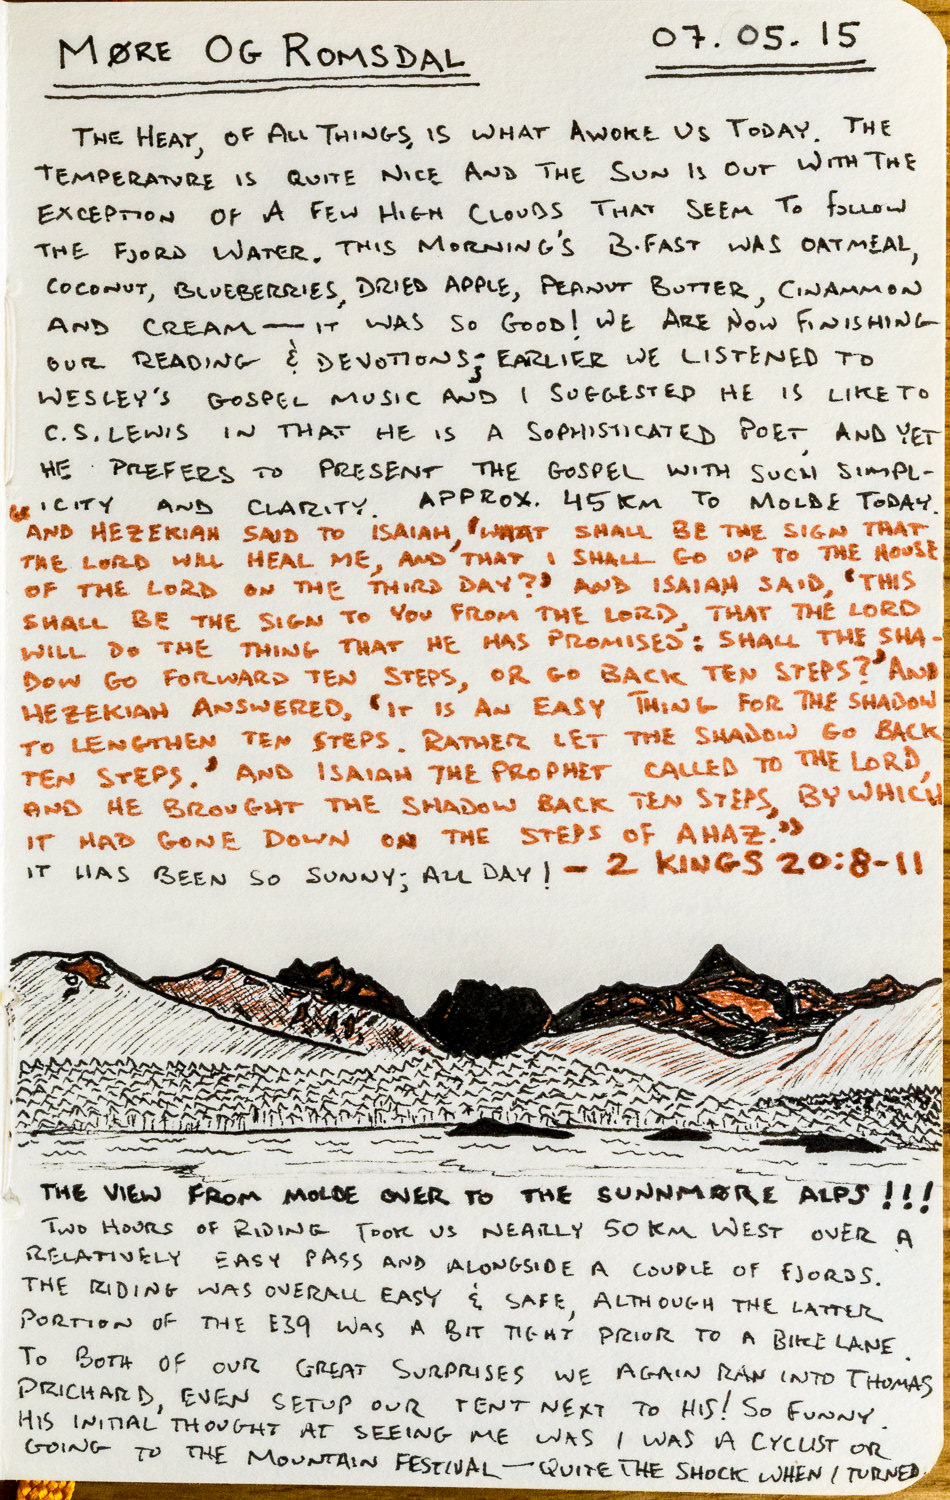 MØRE OG ROMSDAL
07.05.15
THE HEAT, OF ALL THINGS, IS WHAT AWOKE US TODAY. THE
TEMPERATURE IS QUITE NICE AND THE SUN IS OUT WITH THE
EXCEPTION OF A FEW HIGH CLOUDS THAT SEEM TO FOLLOW
THE FJORD WATER. THIS MORNING'S B.FAST WAS OATMEAL,
COCONUT, BLUEBERRIES, DRIED APPLE, PEANUT BUTTER, CINAMMON
AND CREAM — IT WAS SO GOOD! WE ARE NOW FINISHING
OUR READING & DEVOTIONS; EARLIER WE LISTENED TO
WESLEY'S GOSPEL MUSIC AND I SUGGESTED HE IS LIKE TO
C.S. LEWIS IN THAT HE IS A SOPHISTICATED POET, AND YET
HE PREFERS TO PRESENT THE GOSPEL WITH SUCH SIMPL-
ICITY AND CLARITY. APPROX. 45 KM TO MOLDE TODAY.
"AND HEZEKIAH SAID TO ISAIAH, 'WHAT SHALL BE THE SIGN THAT
THE LORD WILL HEAL ME, AND THAT I SHALL GO UP TO THE HOUSE
OF THE LORD ON THE THIRD DAY?' AND ISAIAH SAID, 'THIS
SHALL BE THE SIGN TO YOU FROM THE LORD, THAT THE LORD
WILL DO THE THING THAT HE HAS PROMISED: SHALL THE SHA-
DOW GO FORWARD TEN STEPS, OR GO BACK TEN STEPS?' AND
HEZEKIAH ANSWERED, 'IT IS AN EASY THING FOR THE SHADOW
TO LENGTHEN TEN STEPS. RATHER LET THE SHADOW GO BACK
TEN STEPS.' AND ISAIAH THE PROPHET CALLED TO THE LORD,
AND HE BROUGHT THE SHADOW BACK TEN STEPS, BY WHICH
IT HAD GONE DOWN ON THE STEPS OF AHAZ."
IT HAS BEEN SO SUNNY; ALL DAY! — 2 KINGS 20:8-11
THE VIEW FROM MOLDE OVER TO THE SUNNMØRE ALPS!!!
TWO HOURS OF RIDING TOOK US NEARLY 50 KM WEST OVER A
RELATIVELY EASY PASS AND ALONGSIDE A COUPLE OF FJORDS.
THE RIDING WAS OVERALL EASY & SAFE, ALTHOUGH THE LATTER
PORTION OF THE E39 WAS A BIT TIGHT PRIOR TO A BIKE LANE.
TO BOTH OF OUR GREAT SURPRISES WE AGAIN RAN INTO THOMAS
PRICHARD, EVEN SETUP OUR TENT NEXT TO HIS! SO FUNNY.
HIS INITIAL THOUGHT AT SEEING ME WAS I WAS A CYCLIST OR
GOING TO THE MOUNTAIN FESTIVAL — QUITE THE SHOCK WHEN I TURNED.